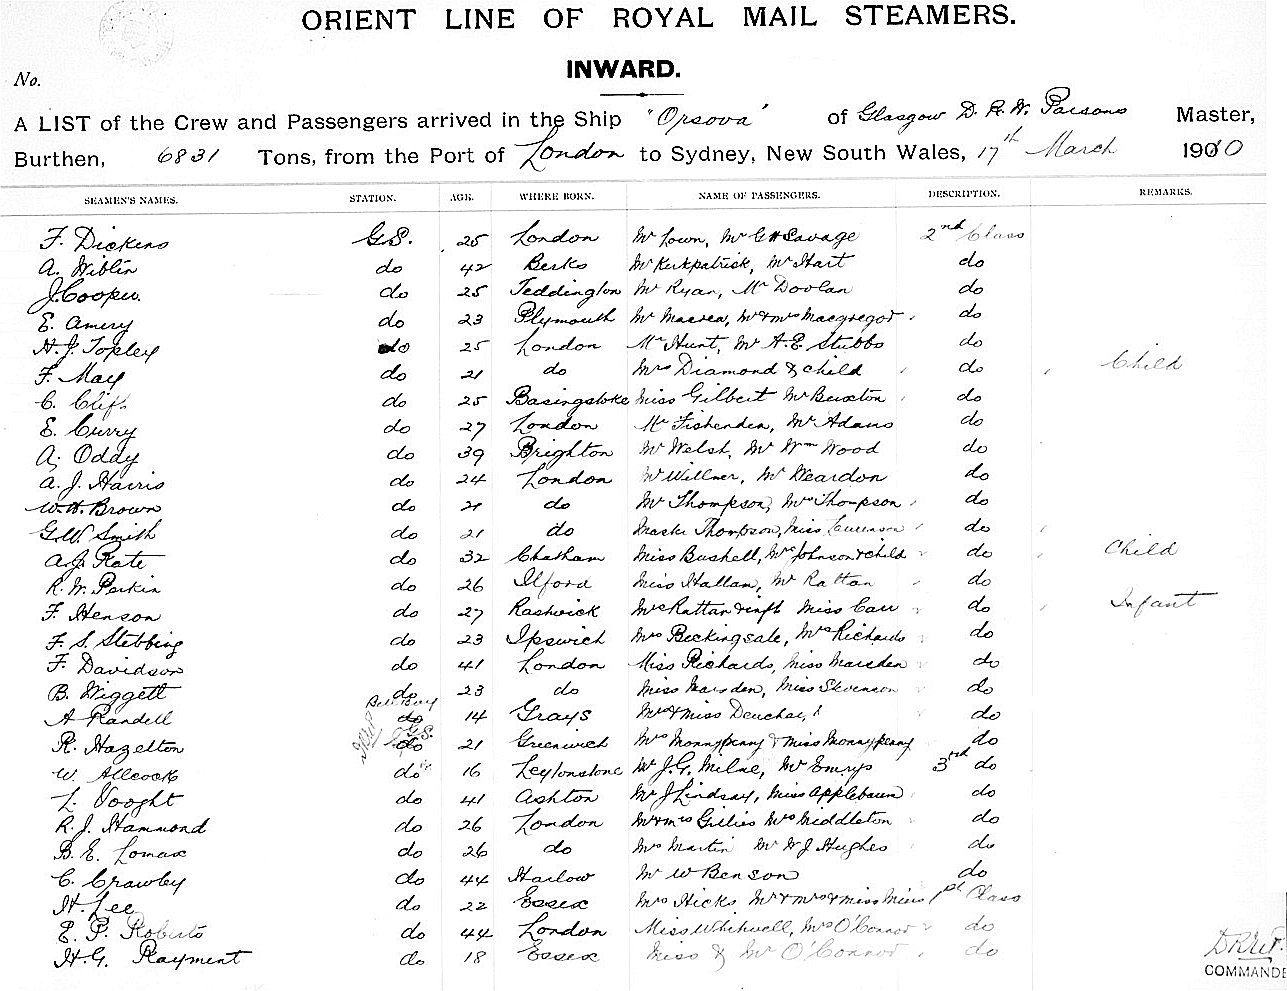 ORIENT LINE OF ROYAL MAIL STEAMERS.
INWARD.
No.
A LIST of the Crew and Passengers arrived in the Ship "Orsova" of Glasgow D. R. W. Parsons Master,
Burthen, 6831 Tons, from the Port of London to Sydney, New South Wales, 17th March 1910
SEAMEN'S NAMES. STATION. AGE. WHERE BORN. NAME OF PASSENGERS. DESCRIPTION. REMARKS.
F. Dickens G.S. 25 London Mr Lown, Mr G H Savage 2nd Class
A. Wiblin do 42 Berks Mr Kirkpatrick, Mr Hart do
J. Cooper. do 25 Teddington Mr Ryan, Mr Doolan do
E. Amery do 23 Plymouth Mr Macrea, Mr & Mrs Macgregor do
H. J. Topley do 25 London Mr Hunt, Mr A. E. Stubbs do
F. May do 21 do Mrs Diamond & child do Child
C. Clift do 25 Basingstoke Miss Gilbert Mr Buxton do
E. Curry do 27 London Mr Fishenden, Mr Adams do
A. Oddy do 39 Brighton Mr Welsh, Mr Wm Wood do
A. J. Harris do 24 London Mr Willner, Mr Weardon do
W. H. Brown do 21 do Mr Thompson, Mrs Thompson do
G. W. Smith do 21 do Master Thompson, Miss do
A. J. Kate do 32 Chatham Miss Bushell, Mrs Johnson & child do Child
R. W. Parkin do 26 Ilford Miss Hallam, Mr Rattan do
F. Henson do 27 Rastwick Mrs Rattan & inft Miss Carr do Infant
F. S. Stebbing do 23 Ipswich Mrs Beckingsale, Mrs Richards do
F. Davidson do 41 London Miss Richards, Miss Marsden do
B. Wiggett do 23 do Miss Marsden, Miss Stevenson do
A Randell do Bell Boy 14 Grays Mrs & Miss Deuchar do
R. Hazelton do G.S. 21 Greenwich Mrs Monnypenny & Miss Monnypenny do
W. Allcock do 16 Leytonstone Mr J. G. Milne, Mr Emrys 3rd do
L. Vooght do 41 Ashton Mr J Lindsay, Miss Applebaum do
R. J. Hammond do 26 London Mr & Mrs Gillies Mrs Middleton do
B. E. Lomax do 26 do Mrs Martin Mr W J Hughes do
C. Crawley do 44 Harlow Mr W Benson do
H. Lee do 22 Essex Mrs Hicks Mr & Mrs & Miss Miers 1st Class
E. P. Roberts do 44 London Miss Whitwell, Mrs O'Connor do
H. G. Rayment do 18 Essex Miss & Mr O'Connor do
D.R.W.P.
COMMANDE